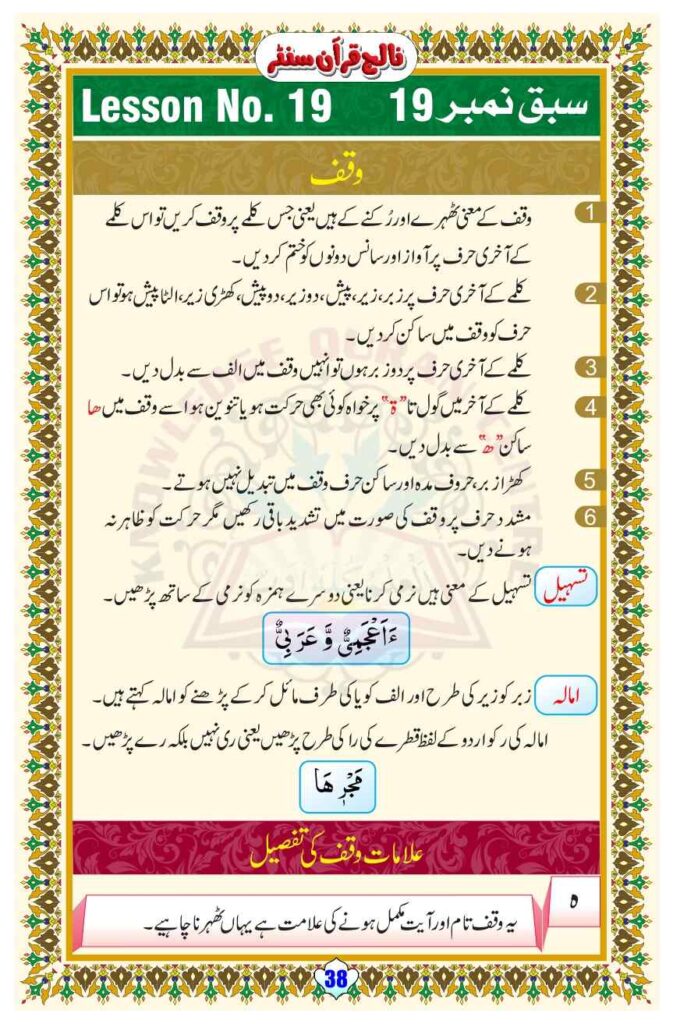 نالج قرآن سنٹر
Lesson No. 19 سبق نمبر 19
وقف
1 وقف کے معنی ٹھہرے اور رُکنے کے ہیں یعنی جس کلمے پر وقف کریں تو اس کلمے
کے آخری حرف پر آواز اور سانس دونوں کو ختم کر دیں۔
2 کلمے کے آخری حرف پر زبر، زیر، پیش، دو زیر، دو پیش، کھڑی زیر، الٹا پیش ہو تو اس
حرف کو وقف میں ساکن کر دیں۔
3 کلمے کے آخری حرف پر دو زبر ہوں تو انہیں وقف میں الف سے بدل دیں۔
4 کلمے کے آخر میں گول تا "ة" پر خواہ کوئی بھی حرکت ہو یا تنوین ہو اسے وقف میں ھا
ساکن "ھ" سے بدل دیں۔
5 کھڑا زبر، حروف مدہ اور ساکن حرف وقف میں تبدیل نہیں ہوتے۔
6 مشدد حرف پر وقف کی صورت میں تشدید باقی رکھیں مگر حرکت کو ظاہر نہ
ہونے دیں۔
تسہیل تسہیل کے معنی ہیں نرمی کرنا یعنی دوسرے ہمزہ کو نرمی کے ساتھ پڑھیں۔
ءَاَعْجَمِیٌّ وَّ عَرَبِیٌّ
امالہ زبر کو زیر کی طرح اور الف کو یا کی طرف مائل کر کے پڑھنے کو امالہ کہتے ہیں۔
امالہ کی ر کو اردو کے لفظ قطرے کی را کی طرح پڑھیں یعنی ری نہیں بلکہ رے پڑھیں۔
مَجْرٖىھَا
علامات وقف کی تفصیل
ہ
یہ وقف تام اور آیت مکمل ہونے کی علامت ہے یہاں ٹھہرنا چاہیے۔
38
KNOWLEDGE QURAN CENTER